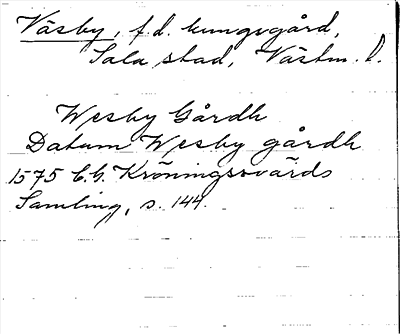 Väsby, f.d. kungsgård,
Sala stad, Västm. l.
Wesby Gårdh
Datum Wesby gårdh
1575 C.G. Kröningssvärds
Samling, s. 144.